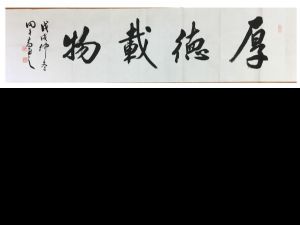 厚德載物
戊戌仲冬